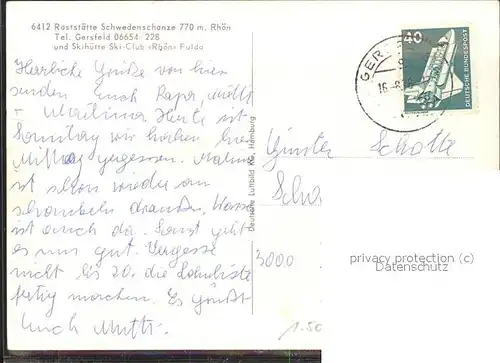 6412 Raststätte Schwedenschanze 770 m, Rhön
Tel. Gersfeld 06654 228
und Skihütte Ski-Club »Rhön« Fulda
Herrliche Grüße von hier
senden Euch Papa,
Heute ist
Sonntag wir haben hier
Mittag gegessen.
ist schon wieder am
schaukeln draußen,
ist auch da. Sonst geht
es uns gut. Vergesse
nicht bis 20. die
fertig machen. Es grüßt
Euch Mutti.
Deutsche Luftbild KG, Hamburg
40
DEUTSCHE BUNDESPOST
GERSF
Günter Schotte
Schw
3000
1.50
privacy protection (c)
Datenschutz